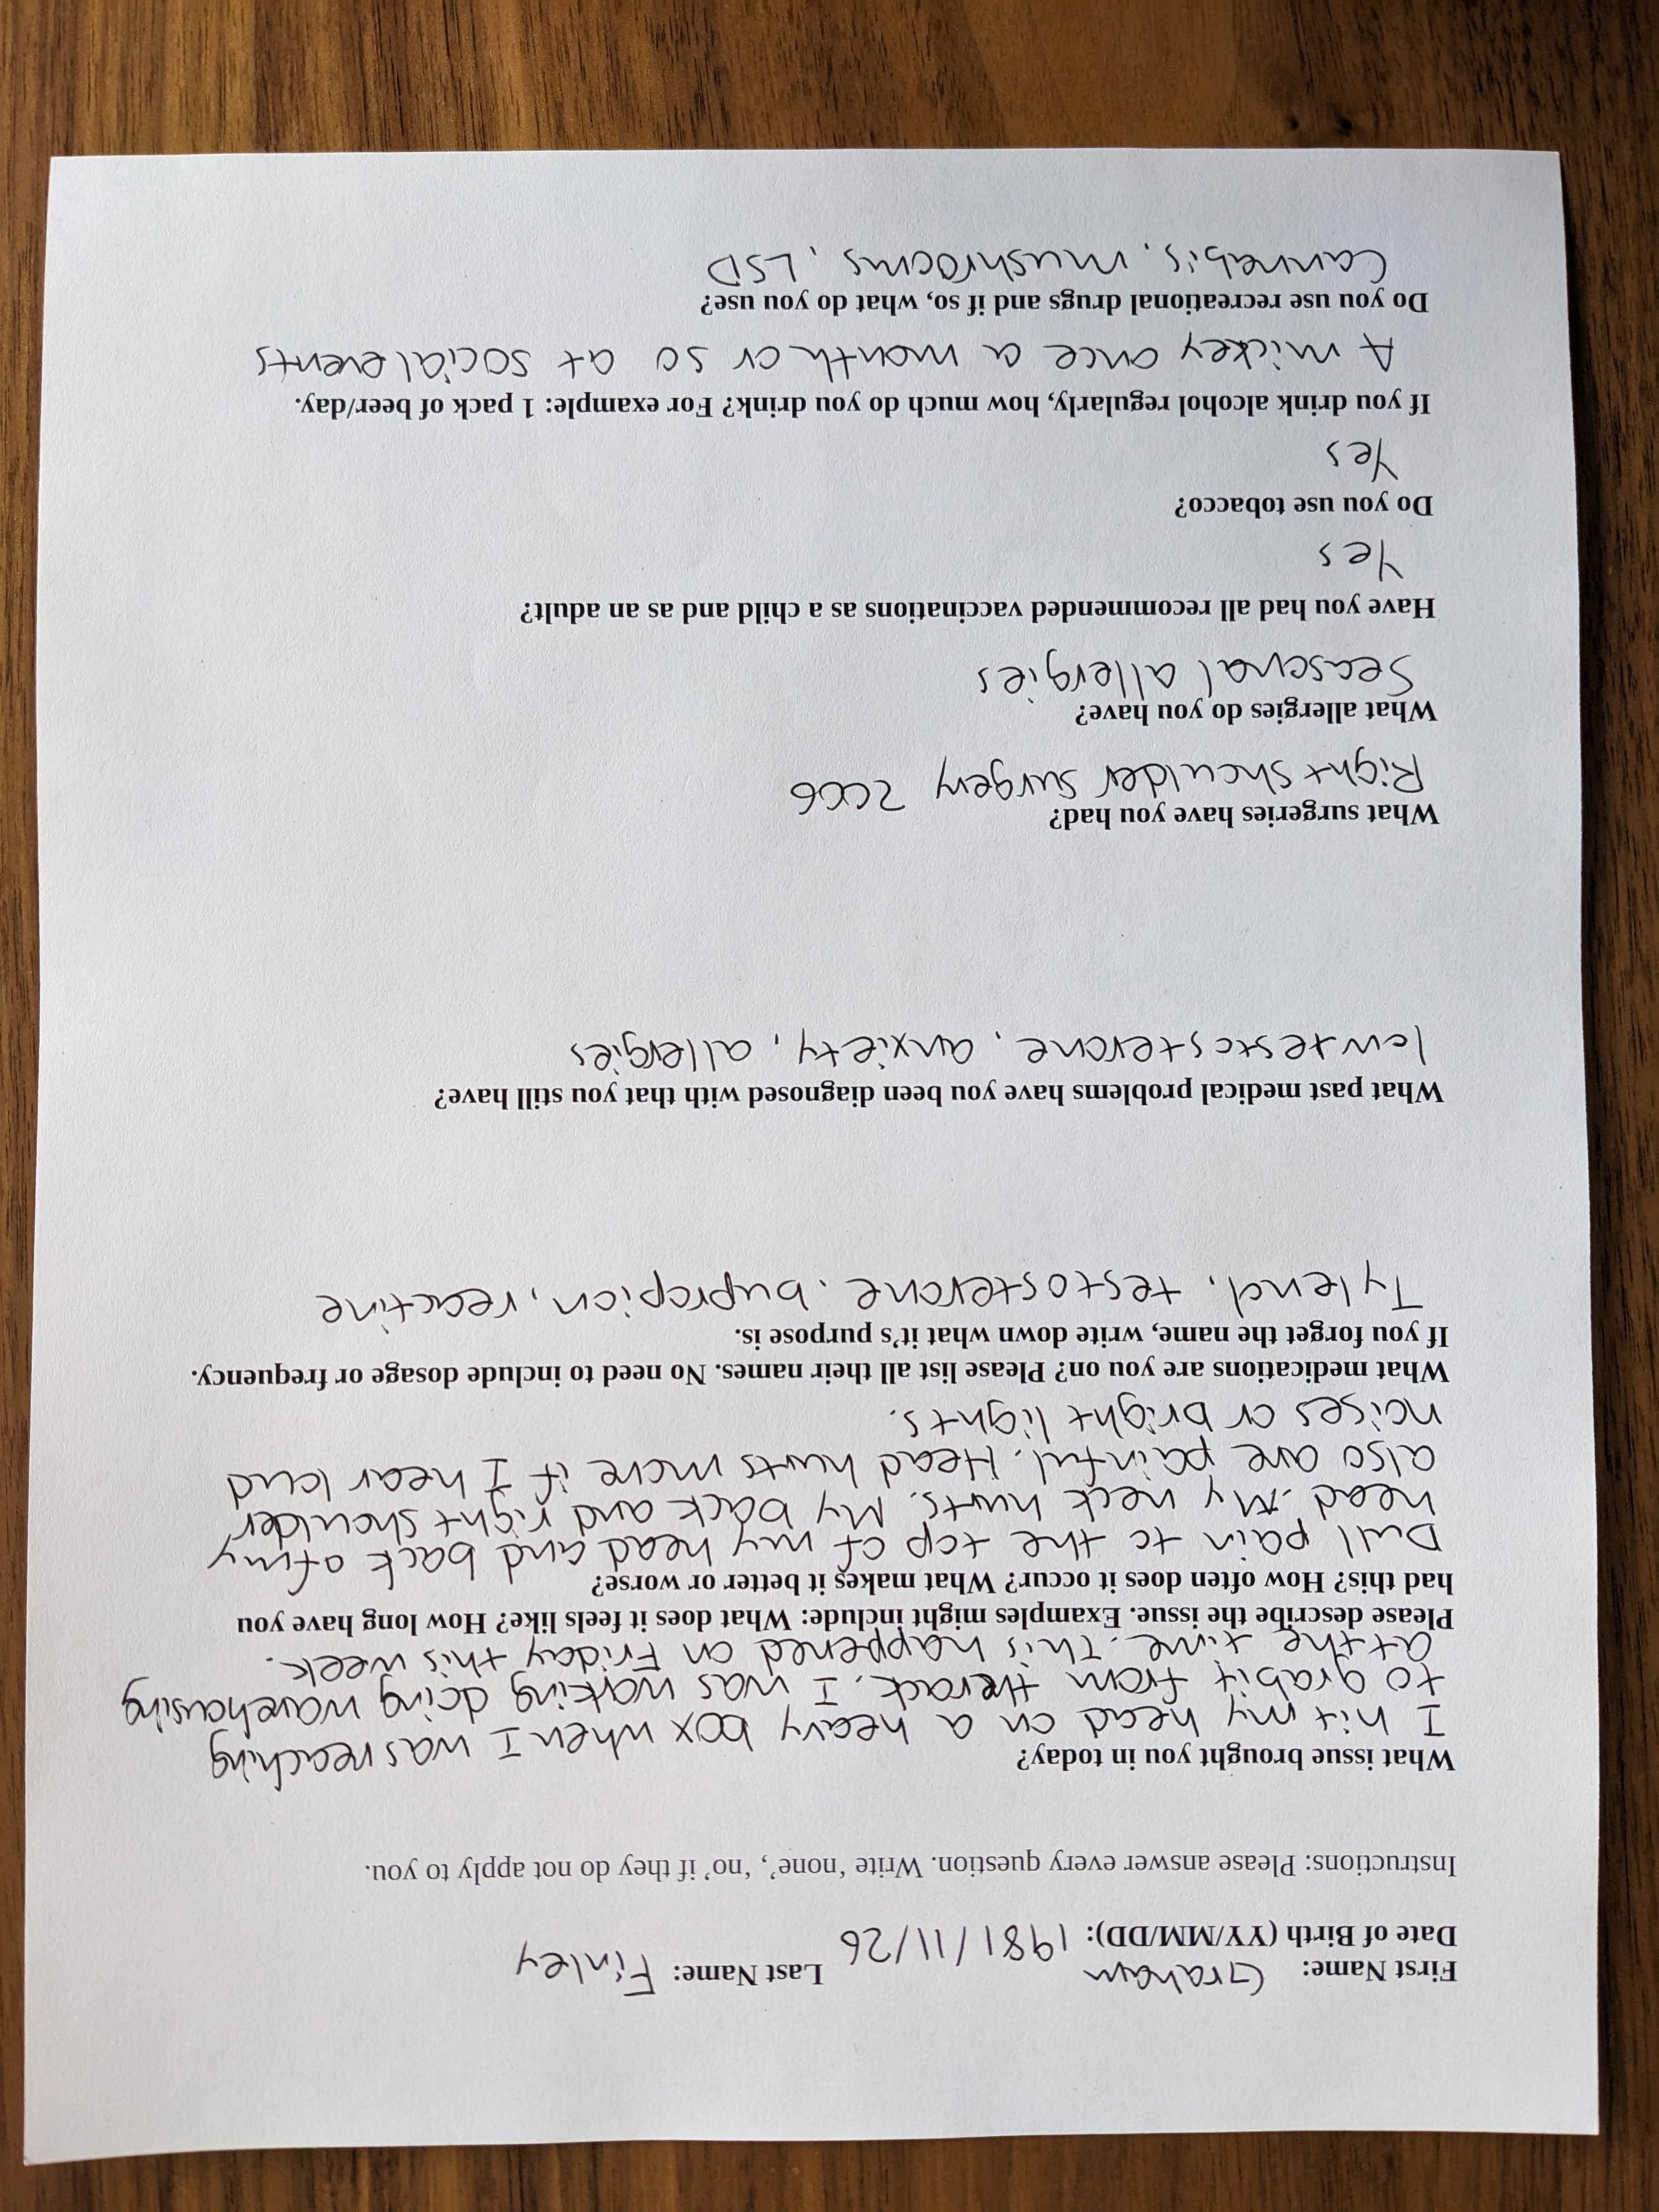 First Name: Graham Last Name: Finley
Date of Birth (YY/MM/DD): 1981/11/26
Instructions: Please answer every question. Write ‘none’, ‘no’ if they do not apply to you.
What issue brought you in today?
I hit my head on a heavy box when I was reaching
to grab it from the rack. I was working doing warehousing
at the time. This happened on Friday this week.
Please describe the issue. Examples might include: What does it feels like? How long have you
had this? How often does it occur? What makes it better or worse?
Dull pain to the top of my head and back of my
head. My neck hurts. My back and right shoulder
also are painful. Head hurts more if I hear loud
noises or bright lights.
What medications are you on? Please list all their names. No need to include dosage or frequency.
If you forget the name, write down what it’s purpose is.
Tylenol, testosterone, bupropion, reactine
What past medical problems have you been diagnosed with that you still have?
low testosterone, anxiety, allergies
What surgeries have you had?
Right shoulder surgery 2006
What allergies do you have?
Seasonal allergies
Have you had all recommended vaccinations as a child and as an adult?
Yes
Do you use tobacco?
Yes
If you drink alcohol regularly, how much do you drink? For example: 1 pack of beer/day.
A mickey once a month or so at social events
Do you use recreational drugs and if so, what do you use?
Cannabis, mushrooms, LSD